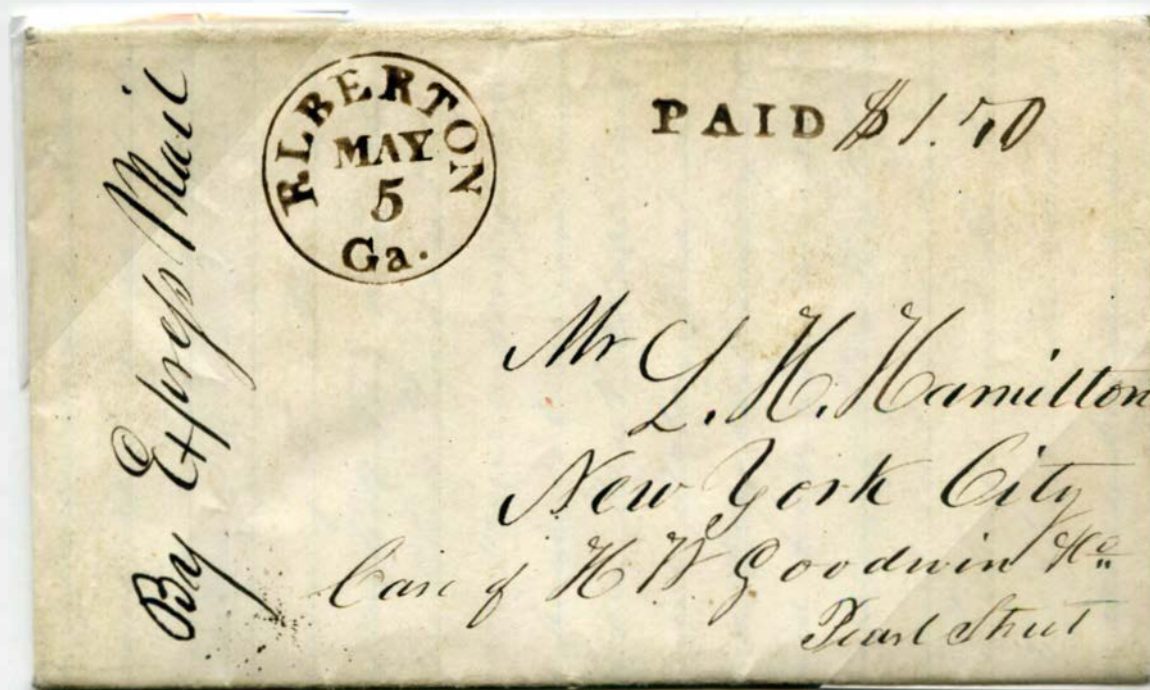 By Express Mail
RLBERTON
MAY
5
Ga.
PAID $1.50
Mr L. H. Hamilton
New York City
Care of H W Goodwin &Co
Pearl Street